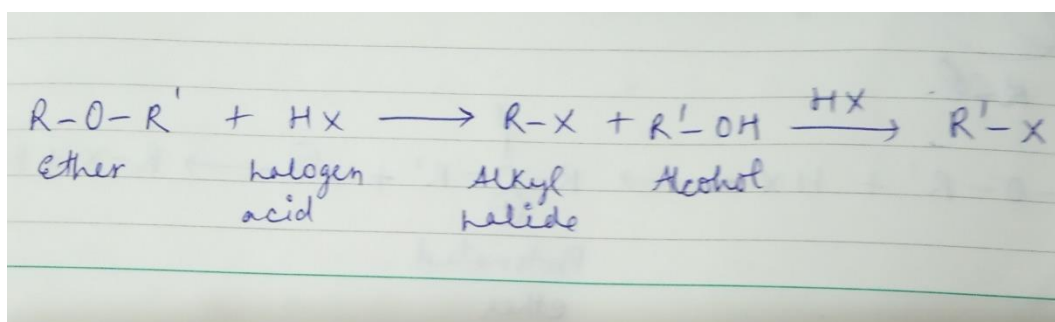 R-O-R' + HX ⟶ R-X + R'-OH —HX→ R'-X
Ether halogen acid Alkyl halide Alcohol